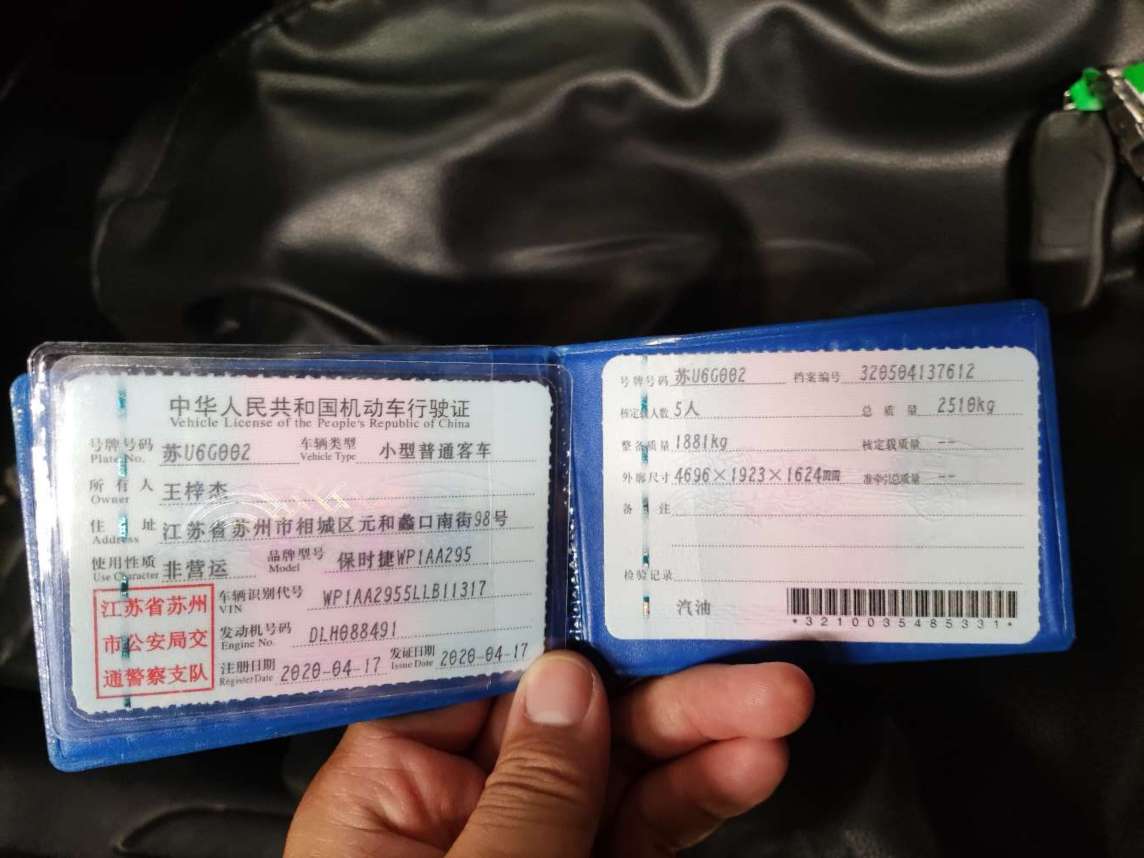 中华人民共和国机动车行驶证
Vehicle License of the People's Republic of China
号牌号码 苏U6G002 车辆类型 小型普通客车
Plate No. Vehicle Type
所有人 王梓杰
Owner
住址 江苏省苏州市相城区元和蠡口南街98号
Address
使用性质 非营运 品牌型号 保时捷WP1AA295
Use Character Model
江苏省苏州
市公安局交
通警察支队
车辆识别代号 WP1AA2955LLB11317
VIN
发动机号码 DLH088491
Engine No.
注册日期 2020-04-17 发证日期 2020-04-17
Register Date Issue Date
号牌号码 苏U6G002 档案编号 320504137612
核定载人数 5人 总质量 2510kg
整备质量 1881kg 核定载质量 --
外廓尺寸 4696×1923×1624mm 准牵引总质量 --
备注
检验记录
汽油
*3210035485331*